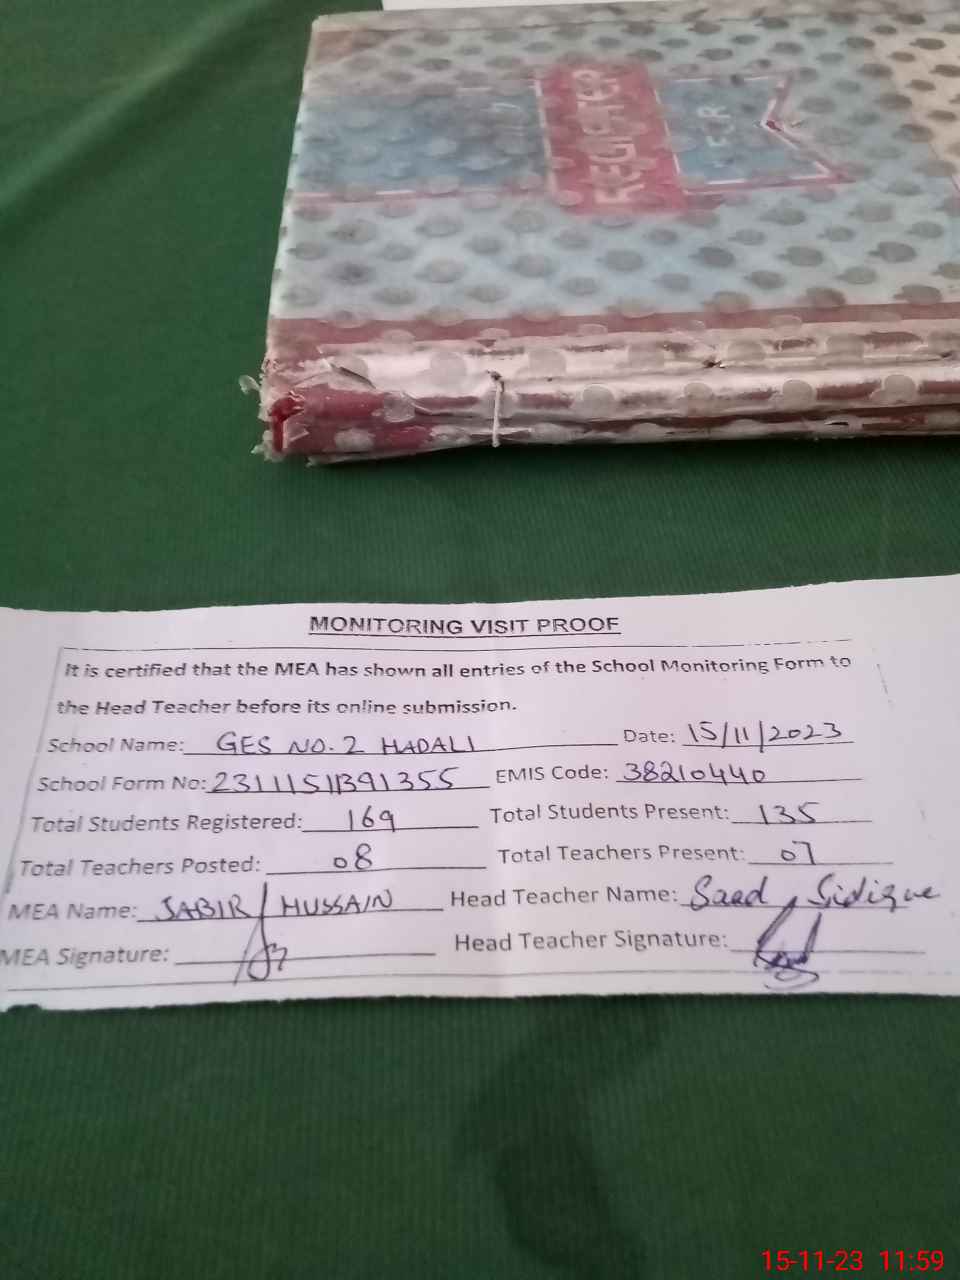 REGISTER
MONITORING VISIT PROOF
It is certified that the MEA has shown all entries of the School Monitoring Form to
the Head Teacher before its online submission.
School Name: GES NO. 2 HADALI Date: 15/11/2023
School Form No: 23111511391355 EMIS Code: 38210440
Total Students Registered: 169 Total Students Present: 135
Total Teachers Posted: 08 Total Teachers Present: 07
MEA Name: SABIR HUSSAIN Head Teacher Name: Saad Sidique
MEA Signature: Head Teacher Signature:
15-11-23 11:59